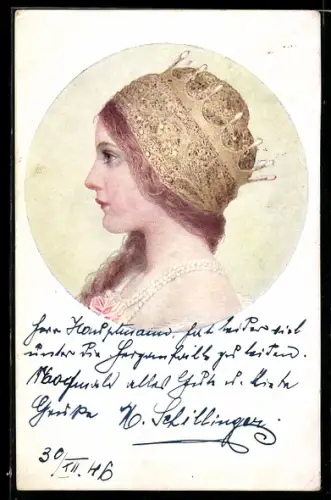 Herr Hauptmann hat leider viel
unter die zu leiden.
Nochmals alles Gute u. liebe
Grüße H. Schillinger
30/XII.46